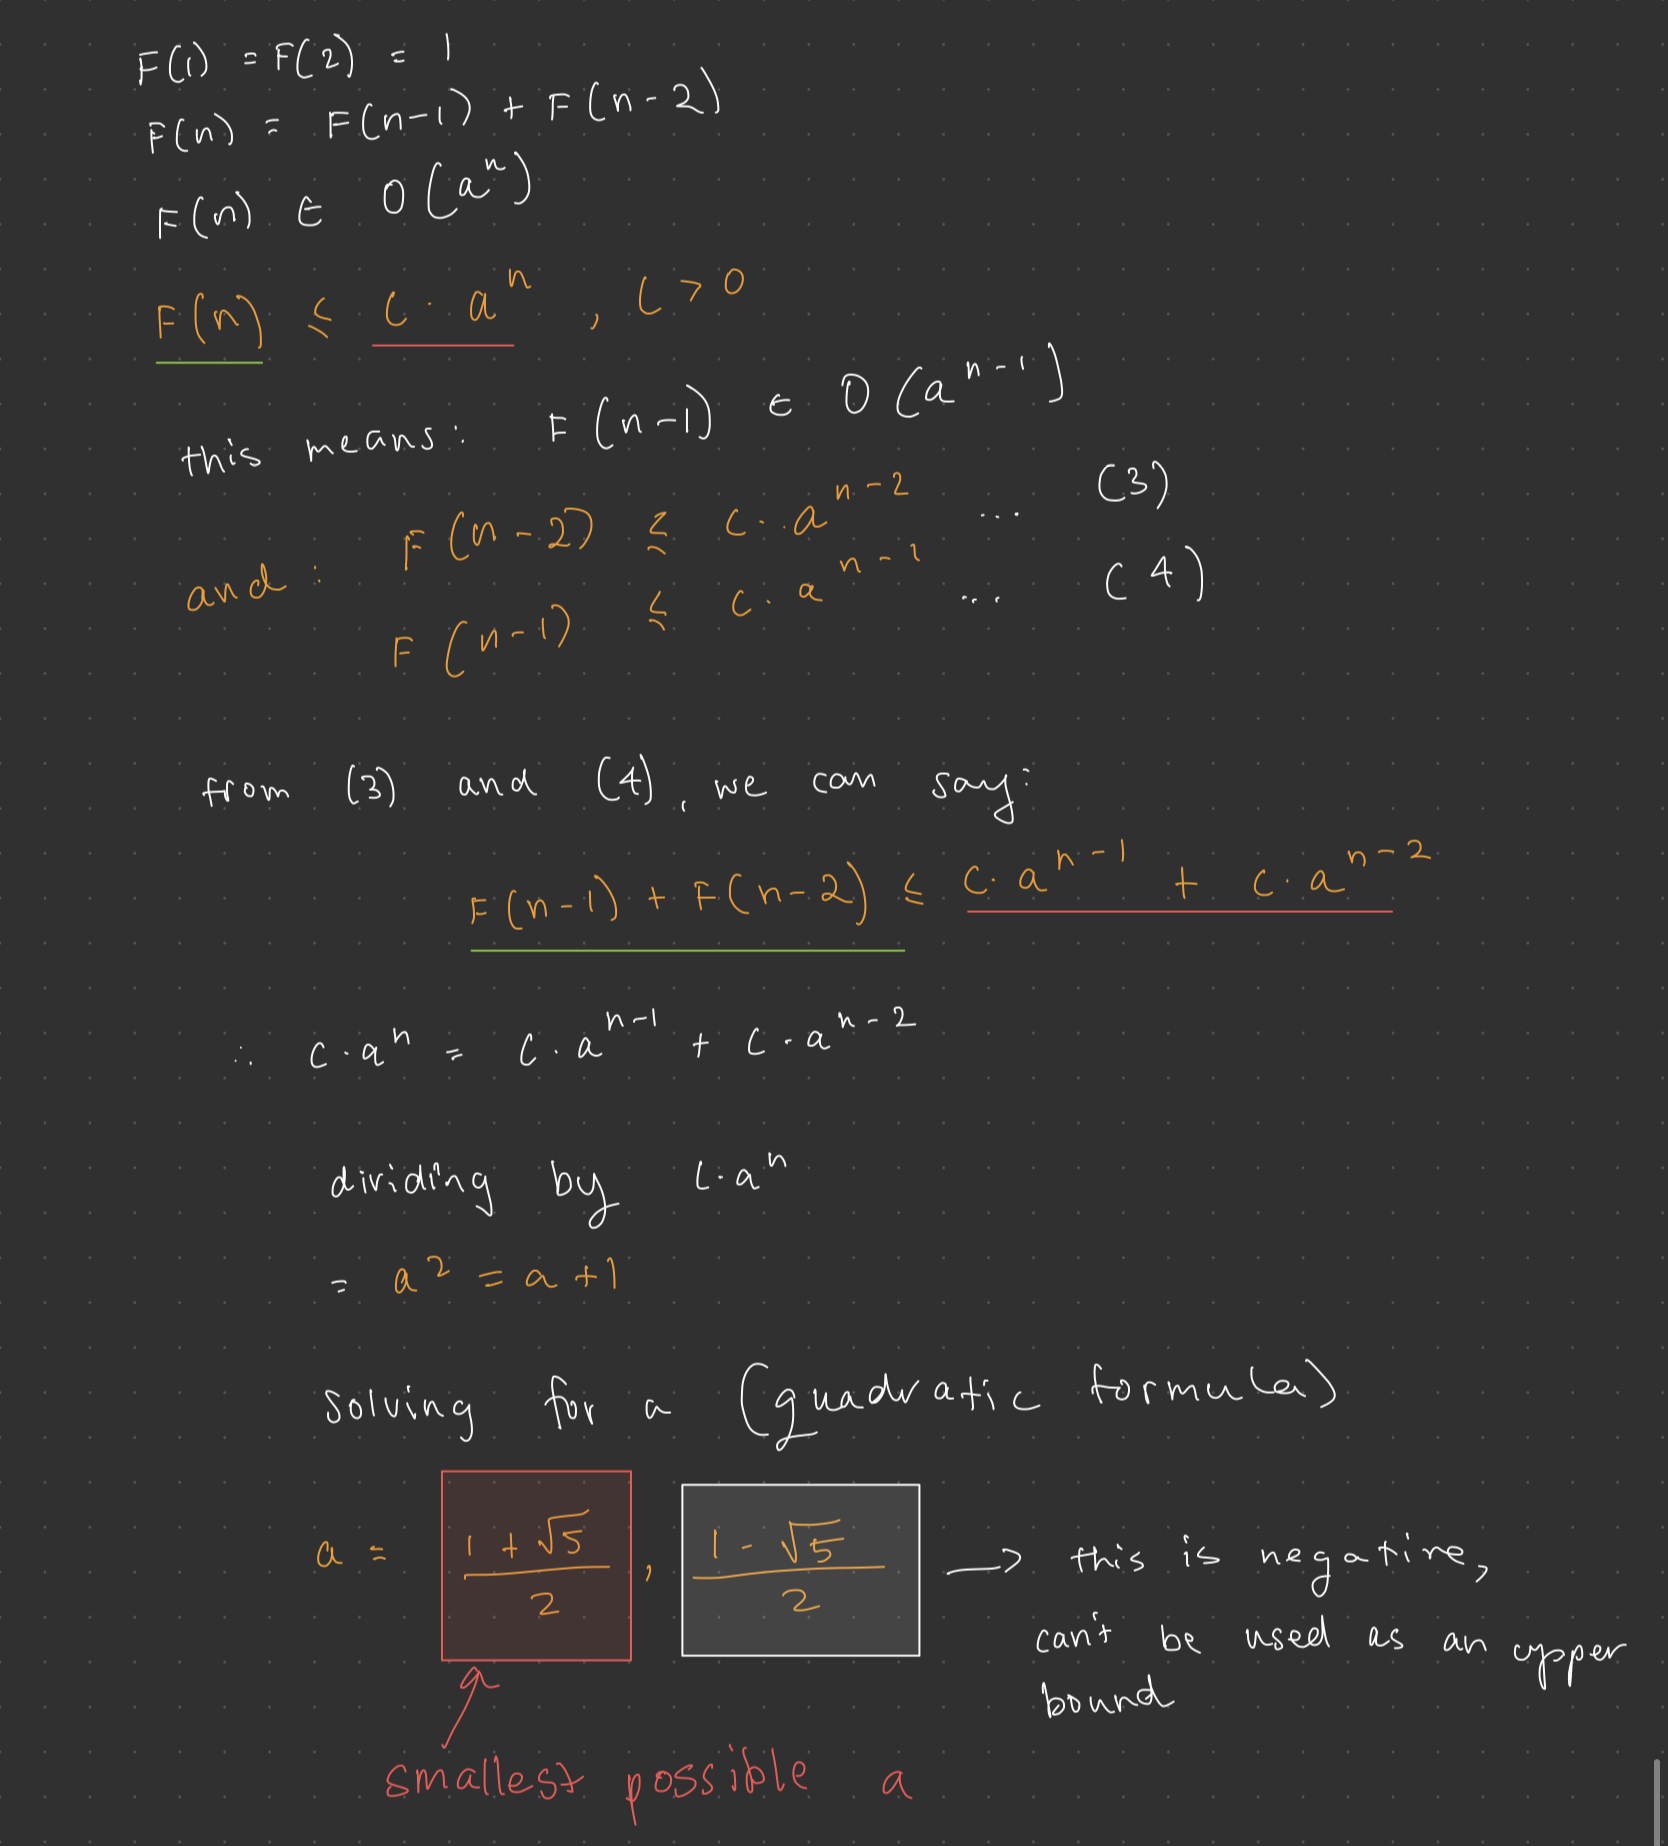 F(1) = F(2) = 1
F(n) = F(n-1) + F(n-2)
F(n) ∈ O(aⁿ)
F(n) ≤ c · aⁿ , c > 0
this means: F(n-1) ∈ O(aⁿ⁻¹)
and: F(n-2) ≤ c · aⁿ⁻² ... (3)
F(n-1) ≤ c · aⁿ⁻¹ ... (4)
from (3) and (4), we can say:
F(n-1) + F(n-2) ≤ c · aⁿ⁻¹ + c · aⁿ⁻²
∴ c · aⁿ = c · aⁿ⁻¹ + c · aⁿ⁻²
dividing by c · aⁿ
= a² = a + 1
solving for a (quadratic formula)
a = (1 + √5)/2 , (1 - √5)/2 → this is negative,
can't be used as an upper
bound
smallest possible a